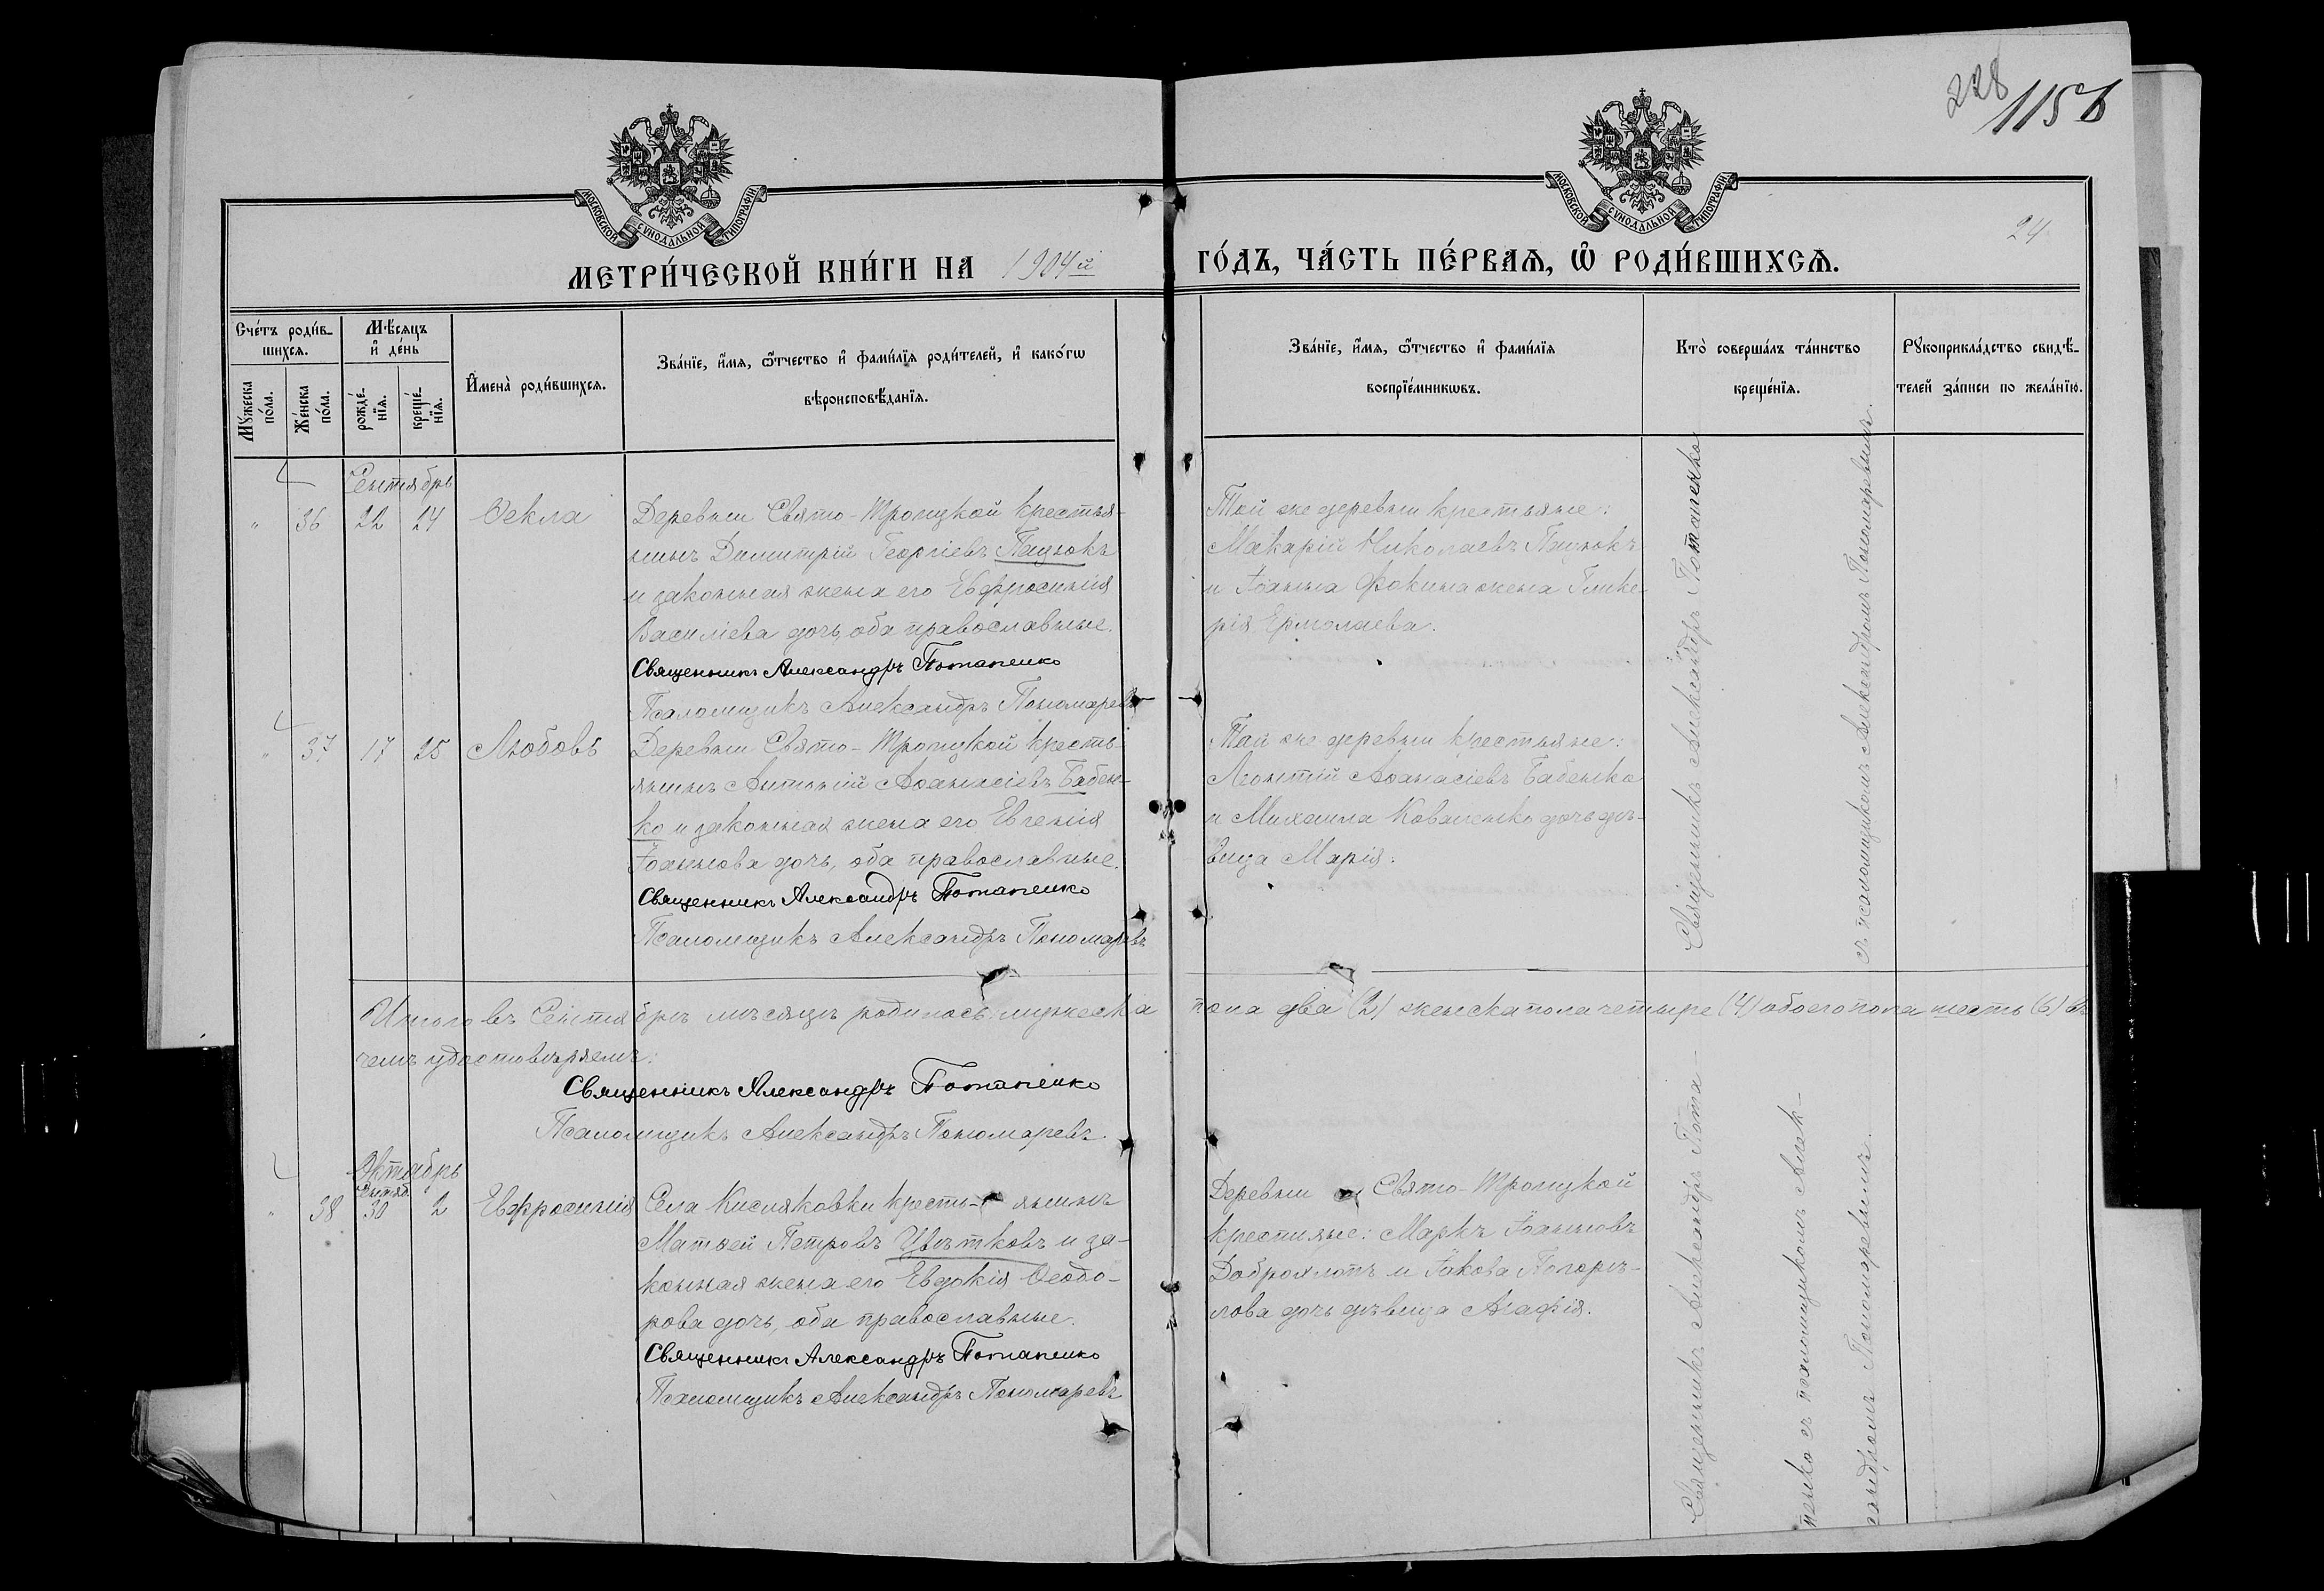 228
115 об
МОСКОВСКОЙ СУНОДАЛЬНОЙ ТИПОГРАФІИ
МОСКОВСКОЙ СУНОДАЛЬНОЙ ТИПОГРАФІИ
24
МЕТРИ́ЧЕСКОЙ КНИ́ГИ НА 1904й ГО́ДЪ, ЧА́СТЬ ПЕ́РВАЯ, Ѡ҆ РОДИ́ВШИХСЯ.
Сче́тъ роди́в-
шихся.
Мꙋ́жеска по́ла.
Же́нска по́ла.
Мѣ́сяцъ и҆ де́нь
рожде́-нїя.
креще́-нїя.
И҆мена̀ роди́вшихся.
Зва́нїе, и҆́мя, ѻ҆́тчество и҆ фами́лїя роди́телей, и҆ како́гѡ
вѣроисповѣ́данїя.
Зва́нїе, и҆́мя, ѻ҆́тчество и҆ фами́лїя
воспрїе́мникѡвъ.
Кто̀ соверша́лъ та́инство
креще́нїя.
Рꙋкоприкла́дство свидѣ́-
телей за́писи по жела́нїю.
Сентябрь
" 36 22 24 Ѳекла
Деревни Свято-Троицкой крестья-
нинъ Димитрій Георгіевъ Пацюкъ
и законная жена его Евфросинія
Василіева дочь, оба православные.
Священникъ Александръ Потапенко
Псаломщикъ Александръ Пономаревъ
Той же деревни крестьяне:
Макарій Николаевъ Пацюкъ
и Іоанна Фокина жена Глике-
рія Ермолаева.
" 37 17 25 Любовь
Деревни Свято-Троицкой кресть-
янинъ Антоній Аѳанасіевъ Бабен-
ко и законная жена его Евгенія
Іоаннова дочь, оба православные.
Священникъ Александръ Потапенко
Псаломщикъ Александръ Пономаревъ
Той же деревни крестьяне:
Леонтій Аѳанасіевъ Бабенко
и Михаила Коваленко дочь дѣ-
вица Марія.
Священникъ Александръ Потапенко
съ псаломщикомъ Александромъ Пономаревымъ.
Итого въ Сентябрѣ мѣсяцѣ родилось мужеска пола два (2) женска пола четыре (4) обоего пола шесть (6) въ
чемъ удостовѣряемъ:
Священникъ Александръ Потапенко
Псаломщикъ Александръ Пономаревъ.
Октябрь
Сентяб.
" 38 30 2 Евфросинія
Села Кисляковки кресть- янинъ
Матѳей Петровъ Цвѣтковъ и за-
конная жена его Евдокія Ѳеодо-
рова дочь, оба православные.
Священникъ Александръ Потапенко
Псаломщикъ Александръ Пономаревъ
Деревни Свято-Троицкой
крестьяне: Маркъ Іоанновъ
Доброхлопъ и Іакова Погорѣ-
лова дочь дѣвица Агафія.
Священникъ Александръ Пота-
пенко съ псаломщикомъ Алек-
сандромъ Пономаревымъ.